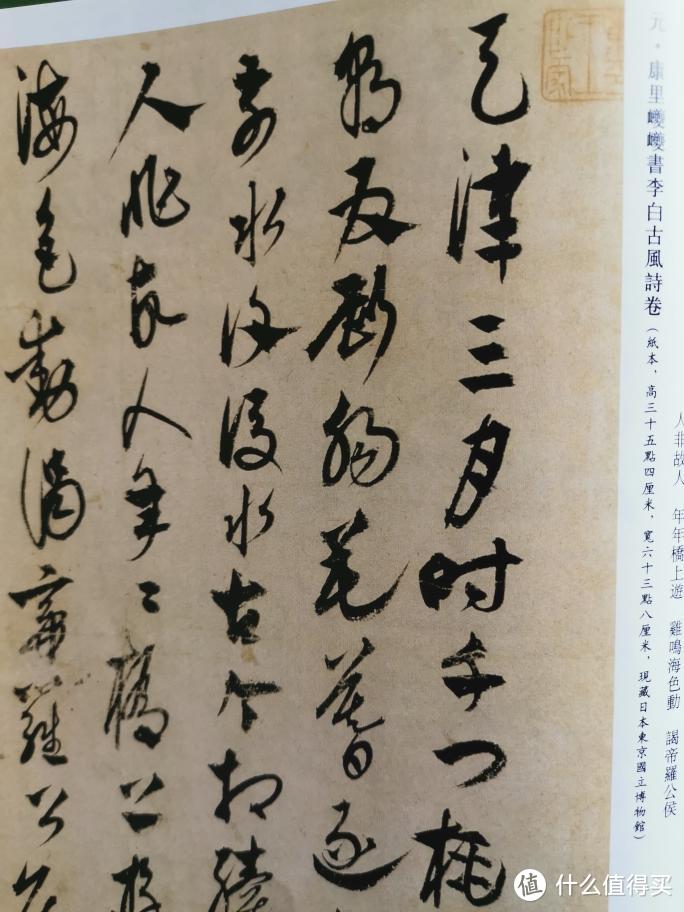 人非故人 年年橋上遊 雞鳴海色動 謁帝羅公侯
元·康里巎巎書李白古風詩卷(紙本,高三十五點四厘米,寬六十三點八厘米,現藏日本東京國立博物館)
天津三月時千門桃
朝為斷腸花暮逐
前水復後水古今相續
人非故人年〻橋上遊
海色動謁帝羅公侯
值 什么值得买